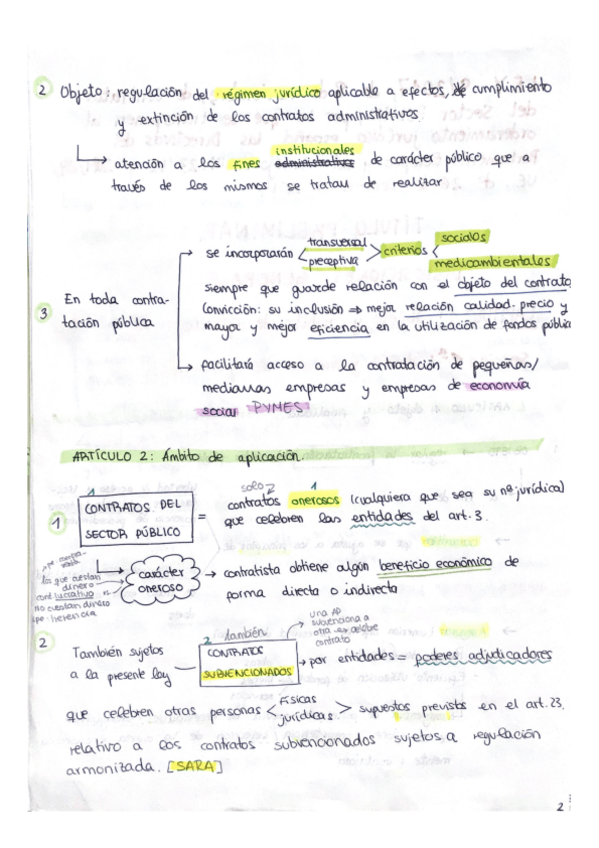 2 Objeto: regulación del régimen jurídico aplicable a efectos, cumplimiento
y extinción de los contratos administrativos
institucionales
→ atención a los fines administrativos de carácter público que a
través de los mismos se tratan de realizar
→ se incorporarán < transversal preceptiva > criterios < sociales medioambientales
siempre que guarde relación con el objeto del contrato
3 En toda contra-
tación pública
Convicción: su inclusión ⇒ mejor relación calidad-precio y
mayor y mejor eficiencia en la utilización de fondos públic
→ facilitará acceso a la contratación de pequeñas/
medianas empresas y empresas de economía
social PYMES
ARTÍCULO 2: Ámbito de aplicación.
1 CONTRATOS DEL
SECTOR PÚBLICO
=
solo 2 1
contratos onerosos (cualquiera que sea su nª jurídica)
que celebren las entidades del art. 3.
los que cuestan
dinero
cont lucrativo
no cuestan dinero
herencia
carácter
oneroso
→ contratista obtiene algún beneficio económico de
forma directa o indirecta
2 También sujetos
a la presente ley
2 también
CONTRATOS
SUBVENCIONADOS
una AP
subvenciona a
otra
contrato
→ por entidades = poderes adjudicadores
que celebren otras personas < físicas jurídicas > supuestos previstos en el art. 23,
relativo a los contratos subvencionados sujetos a regulación
armonizada. [SARA]
2